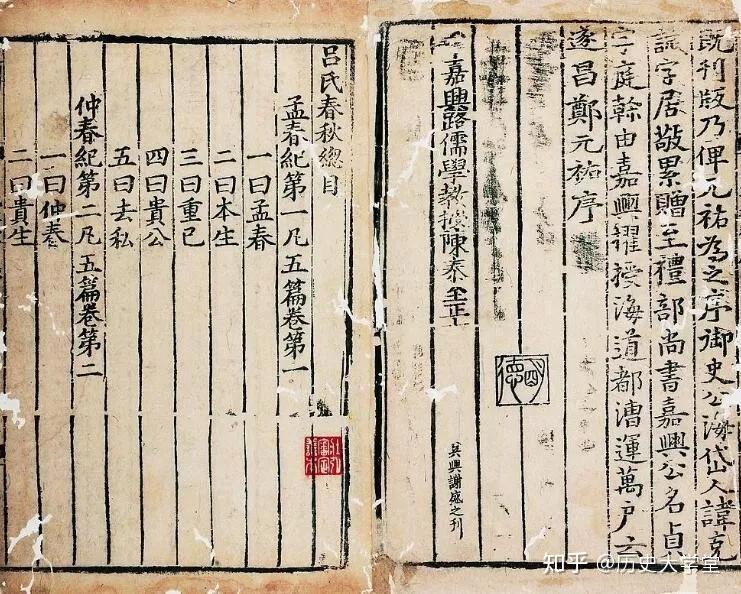 既刊版乃俾元祐為之序御史公海岱人諱克
誠字居敬累贈至禮部尚書嘉興公名貞
字庭幹由嘉興擢授海道都漕運萬户云
遂昌鄭元祐序
嘉興路儒學教授陳泰至正
吳興謝盛之刊
呂氏春秋總目
孟春紀第一凡五篇卷第一
一曰孟春
二曰本生
三曰重已
四曰貴公
五曰去私
仲春紀第二凡五篇卷第二
一曰仲春
二曰貴生
知乎 @历史大学堂